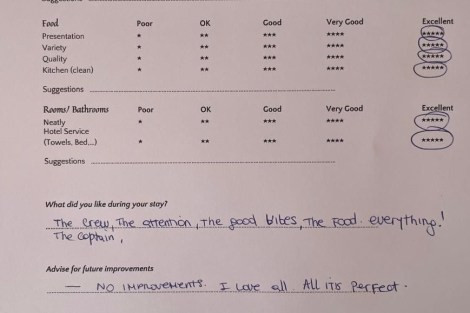 Suggestions
Food Poor OK Good Very Good Excellent
Presentation * ** *** **** *****
Variety * ** *** **** *****
Quality * ** *** **** *****
Kitchen (clean) * ** *** **** *****
Suggestions
Rooms/ Bathrooms Poor OK Good Very Good Excellent
Neatly * ** *** **** *****
Hotel Service
(Towels, Bed...) * ** *** **** *****
Suggestions
What did you like during your stay?
The crew, The attention, The good vibes, The Food. everything!
The Captain,
Advise for future improvements
— NO IMPROVEMENTS. I Love all. All its Perfect.